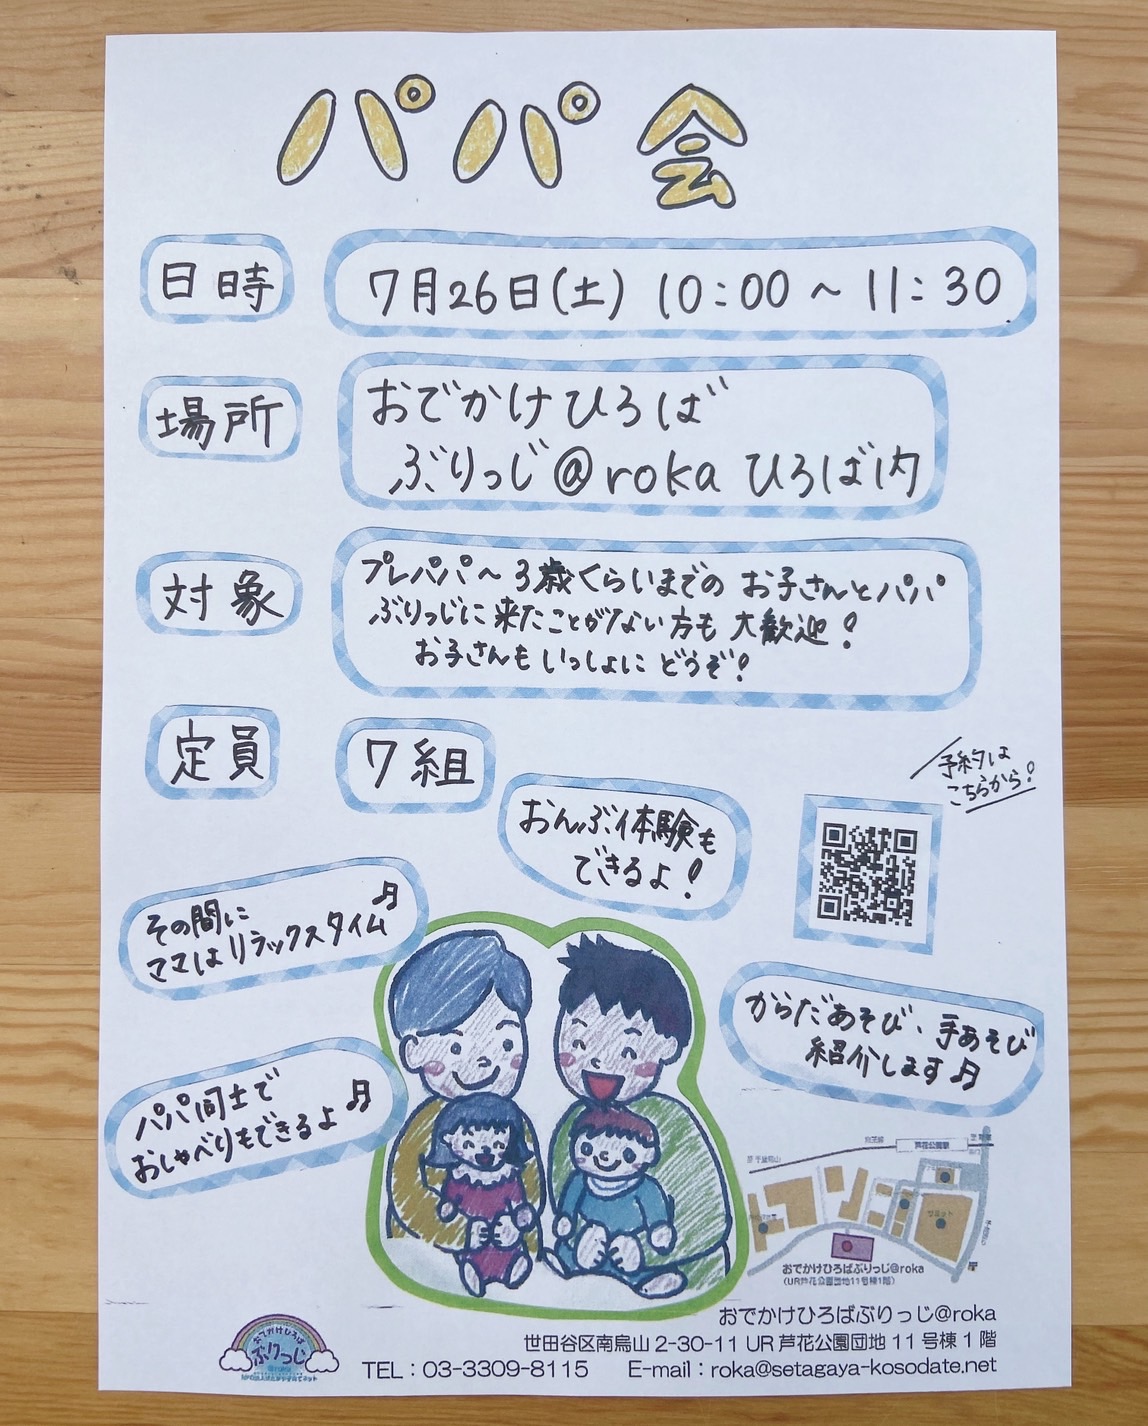 パパ会
日時
7月26日(土) 10:00～11:30
場所
おでかけひろば
ぶりっじ@roka ひろば内
対象
プレパパ～3歳くらいまでの お子さんとパパ
ぶりっじに来たことがない方も 大歓迎!
お子さんもいっしょにどうぞ!
定員
7組
予約は
こちらから!
おんぶ体験も
できるよ!
その間に
ママはリラックスタイム♬
からだあそび、手あそび
紹介します♬
パパ同士で
おしゃべりもできるよ♬
芦花公園駅
サミット
おでかけひろばぶりっじ@roka
(UR芦花公園団地11号棟1階)
おでかけひろば
ぶりっじ
おでかけひろばぶりっじ@roka
世田谷区南烏山 2-30-11 UR 芦花公園団地 11 号棟 1 階
TEL：03-3309-8115 E-mail：roka@setagaya-kosodate.net